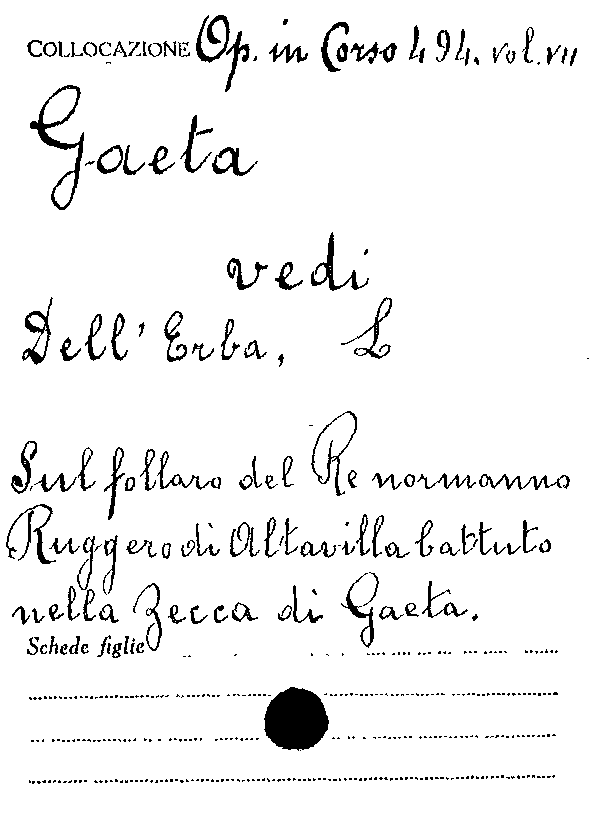 COLLOCAZIONE Op. in Corso 494. vol. VII
Gaeta
vedi
Dell' Erba, L
Sul follaro del Re normanno
Ruggero di Altavilla battuto
nella Zecca di Gaeta.
Schede figlie